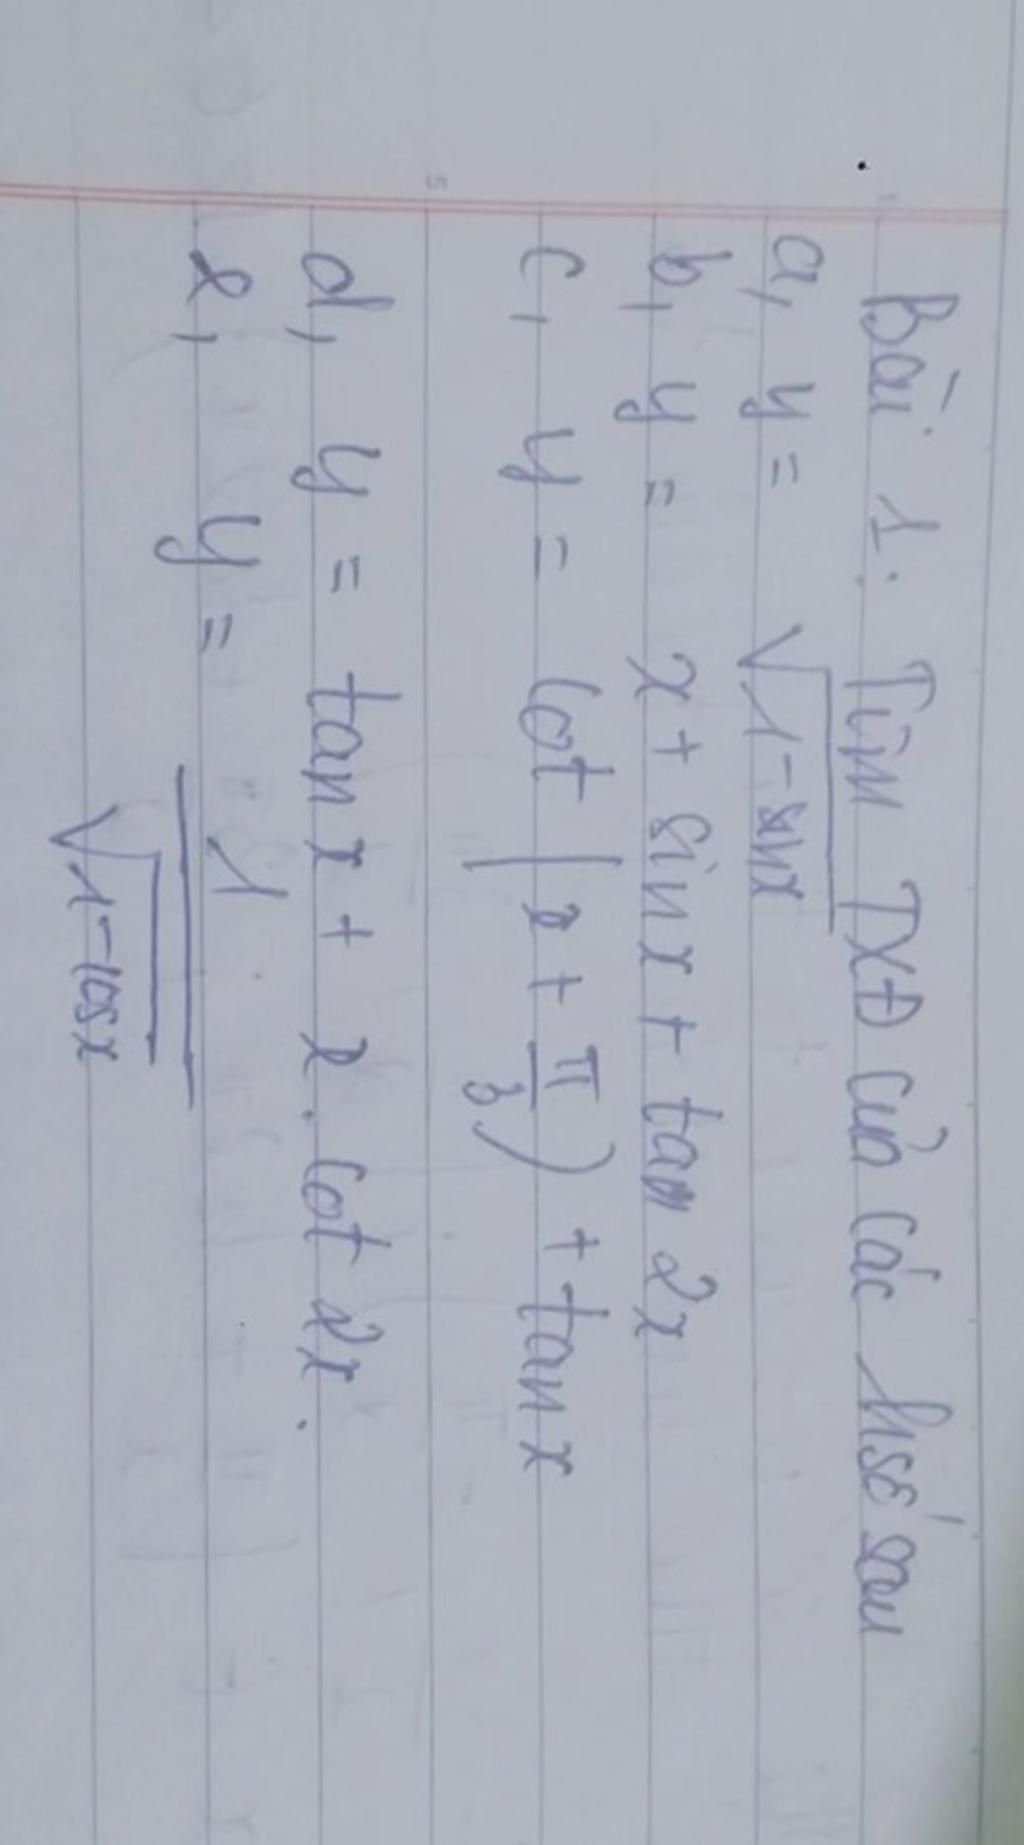 Bài 1. Tìm TXĐ của các hsố sau
a, y = √1-sinx
b, y = x + sin x + tan 2x
c, y = cot (x + π/3) + tan x
d, y = tan x + x. cot 2x.
e, y = 1/√1-cosx